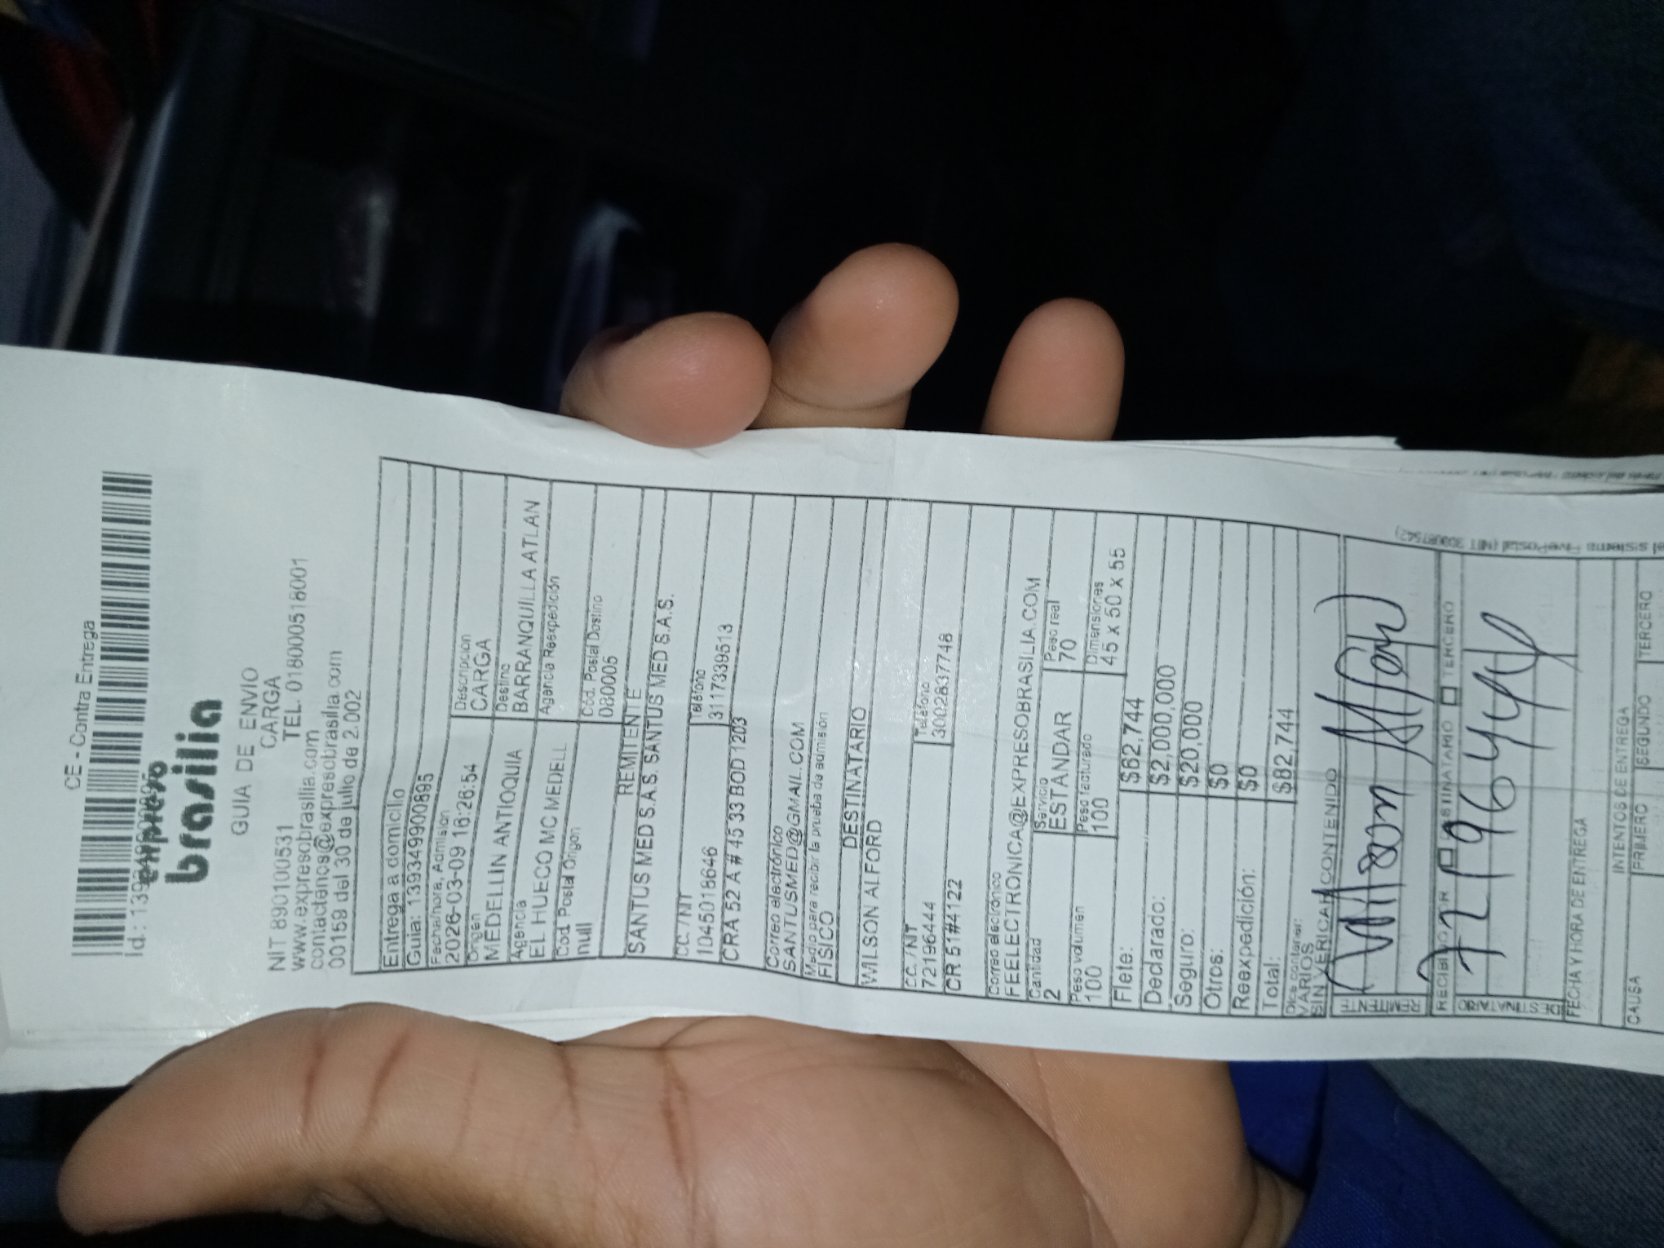 CE - Contra Entrega
expreso
brasilia
GUIA DE ENVIO
CARGA
NIT 890100531 TEL. 018000518001
www.expresobrasilia.com
contactenos@expresobrasilia.com
00159 del 30 de julio de 2.002
Entrega a domicilio
Guia: 139349900895
Fecha/hora, Admisión
2026-03-09 16:26:54
Descripción
CARGA
Origen
MEDELLIN ANTIOQUIA
Destino
BARRANQUILLA ATLAN
Agencia
EL HUECO MC MEDELL
Agencia Reexpedición
Cod. Postal Origen
null
Cód. Postal Destino
080005
REMITENTE
SANTUS MED S.A.S. SANTUS MED S.A.S.
CC. / NT
1045018646
Teléfono
3117339513
CRA 52 A # 45 33 BOD 1203
Correo electrónico
SANTUSMED@GMAIL.COM
Medio para recibir la prueba de admisión
FISICO
DESTINATARIO
WILSON ALFORD
CC. / NT
72196444
Teléfono
3002837748
CR 51#4122
Correo electrónico
FEELECTRONICA@EXPRESOBRASILIA.COM
Cantidad
2
Servicio
ESTANDAR
Peso real
70
Peso volumen
100
Peso facturado
100
Dimensiones
45 x 50 x 55
Flete: $62,744
Declarado: $2,000,000
Seguro: $20,000
Otros: $0
Reexpedición: $0
Total: $82,744
Dice contener:
VARIOS
SIN VERICAR CONTENIDO
REMITENTE
TERCERO
72196444
DESTINATARIO
FECHA Y HORA DE ENTREGA
INTENTOS DE ENTREGA
CAUSA PRIMERO SEGUNDO TERCERO